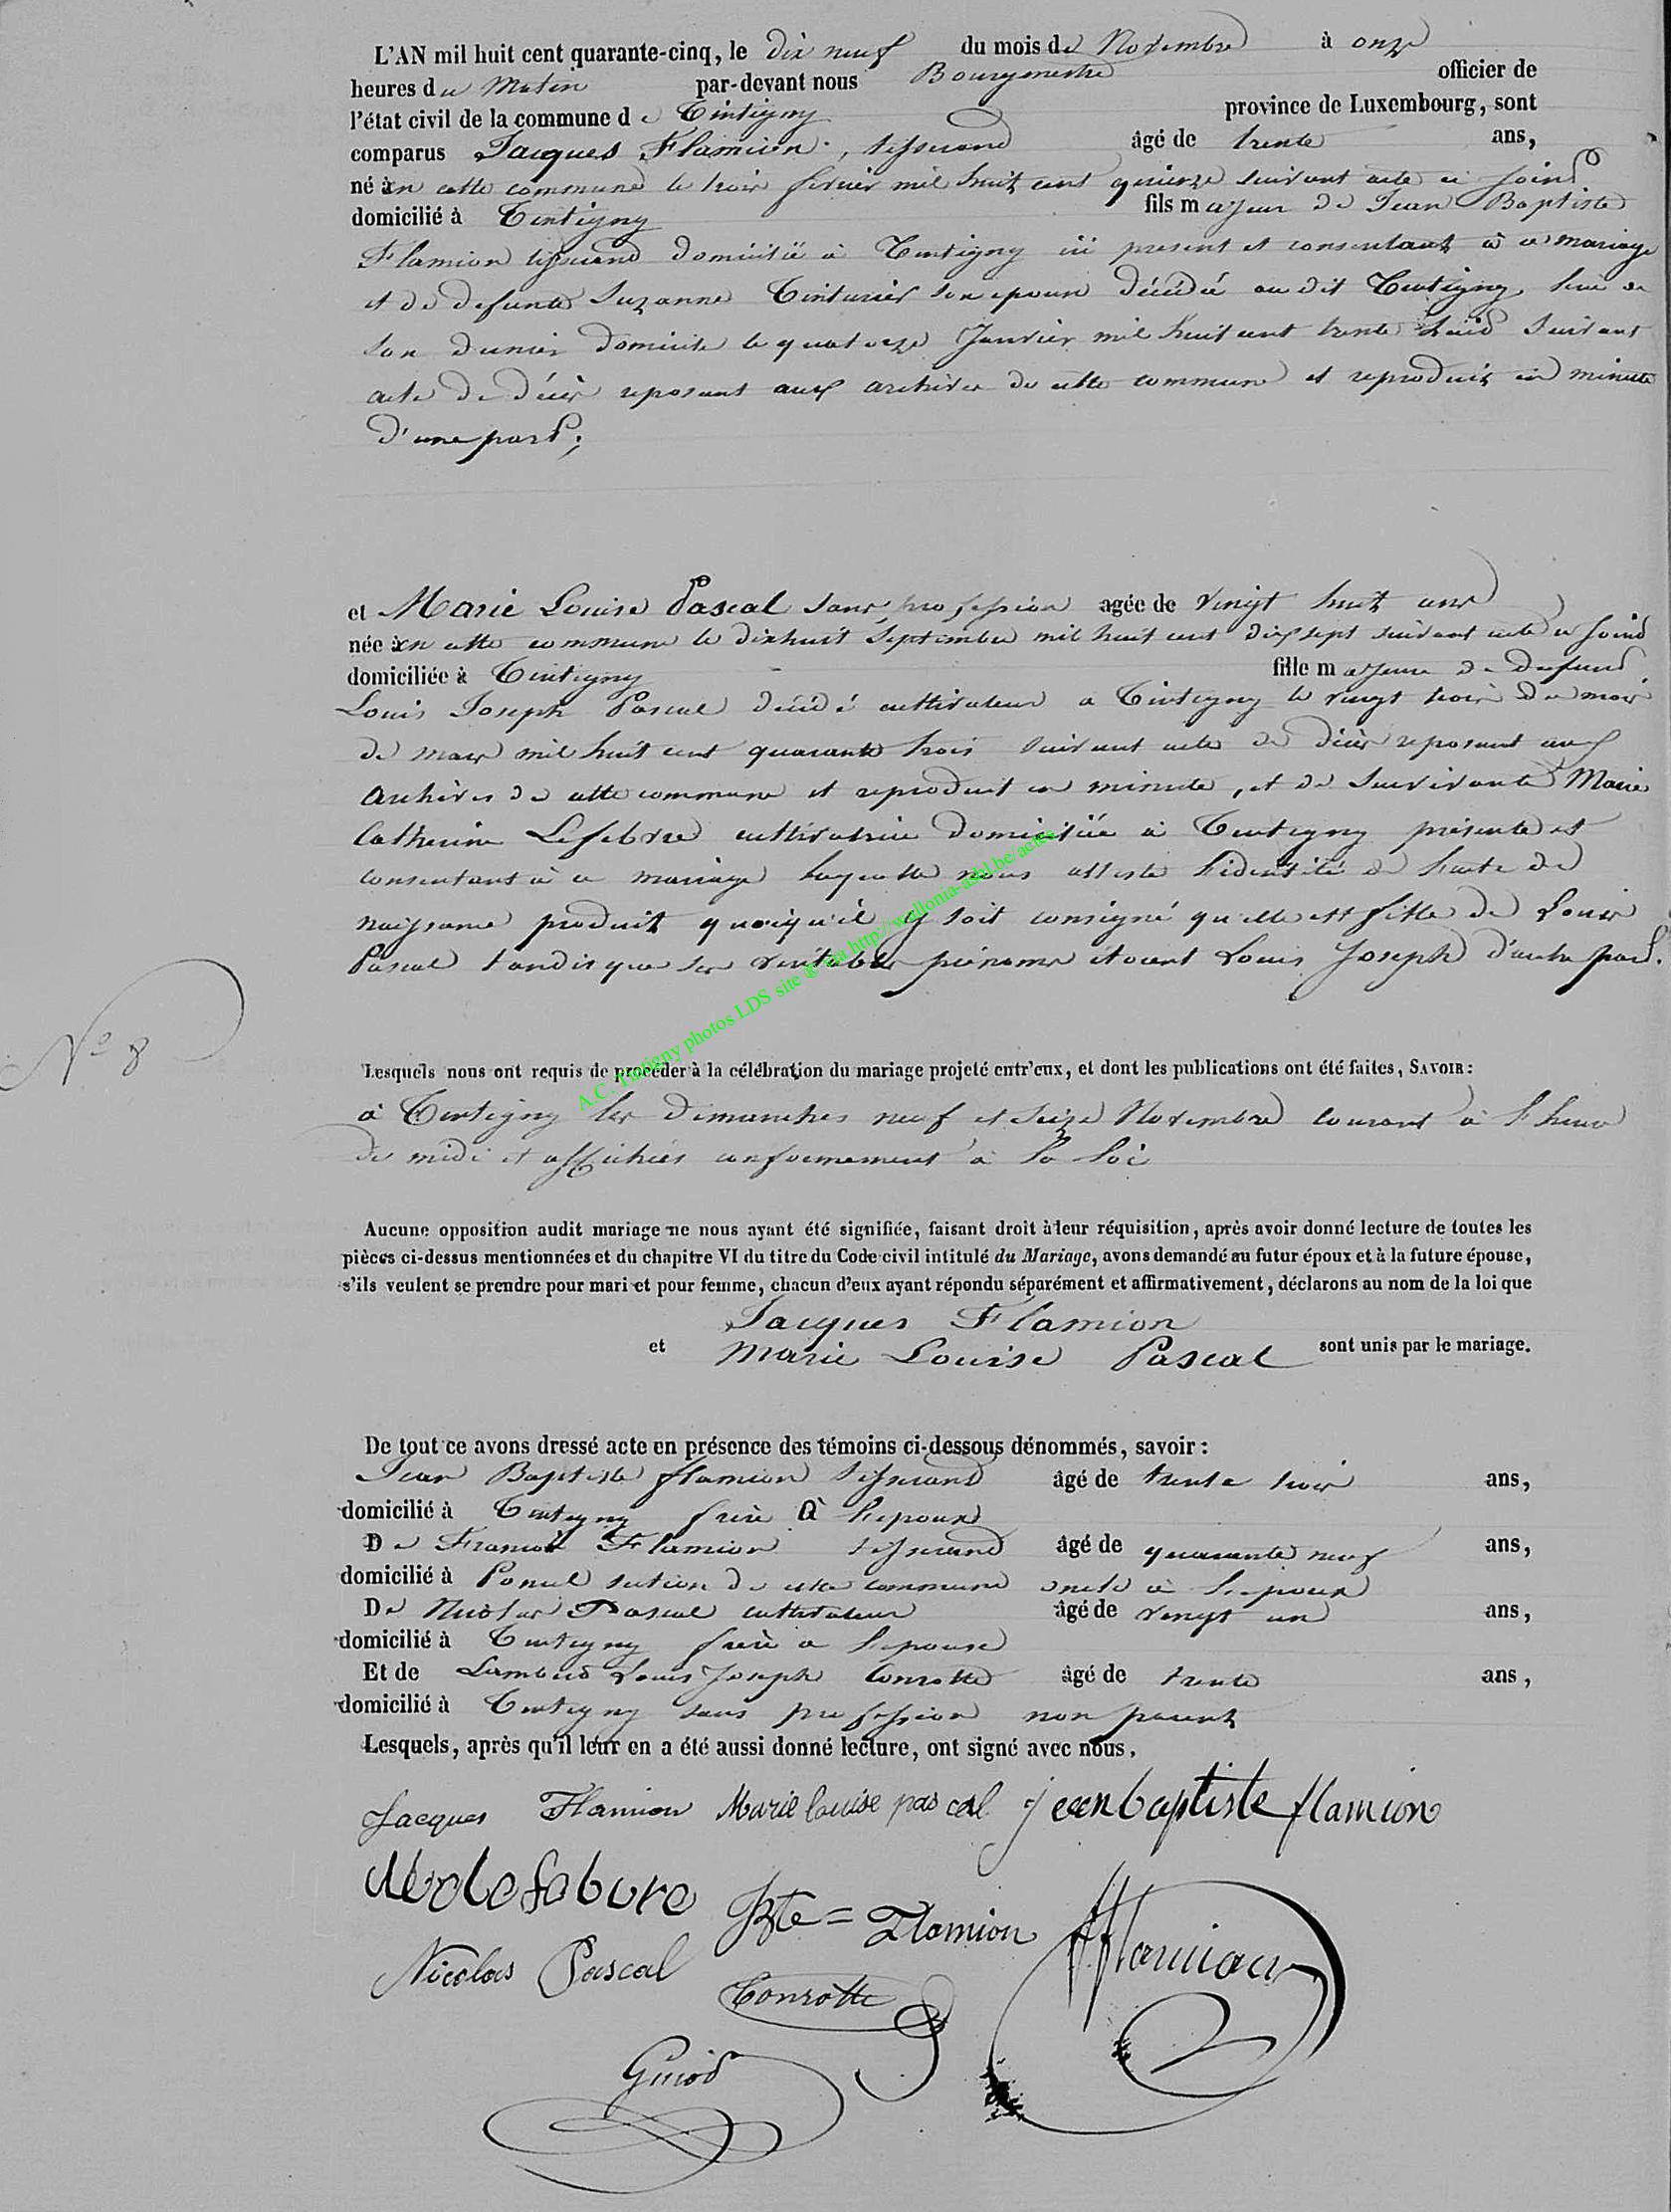 L'AN mil huit cent quarante-cinq, le dix neuf du mois de Novembre à onze
heures du Matin par-devant nous Bourgmestre officier de
l'état civil de la commune de Tintigny province de Luxembourg, sont
comparus Jacques Flamion, tisserand âgé de trente ans,
né à en cette commune le trois fevrier mil huit cent quinze suivant acte ci joint
domicilié à Tintigny fils majeur de Jean Baptiste
Flamion tisserand domicilié à Tintigny ici present et consentant à ce mariage
et de defunte Suzanne Tinturier son epouse décédée au dit Tintigny, lieu de
son dernier domicile le quatorze Janvier mil huit cent trente huit suivant
acte de décès reposant aux archives de cette commune et reproduit en minute
d'une part;
et Marie Louise Pascal sans profession agée de vingt huit ans
née à en cette commune le dixhuit Septembre mil huit cent dix sept suivant acte ci joint
domiciliée à Tintigny fille majeure de defunt
Louis Joseph Pascal décédé cultivateur a Tintigny le vingt trois du mois
de mars mil huit cent quarante trois suivant acte de décès reposant aux
archives de cette commune et reproduit en minute, et de survivante Marie
Catherine Lefebvre cultivatrice domiciliée à Tintigny présente et
consentant à ce mariage laquelle nous atteste l'identité de l'acte de
naissance produit quoiqu'il y soit consigné qu'elle est fille de Louis
Pascal tandis que ses veritables prénoms étoient Louis Joseph d'autre part.
N° 8
Lesquels nous ont requis de procéder à la célébration du mariage projeté entr'eux, et dont les publications ont été faites, SAVOIR:
à Tintigny les dimanches neuf et seize Novembre courant à l'heure
de midi et affichées conformement à la loi
A.C. Tintigny photos LDS site @ via http://wallonia-asbl.be/actes
Aucune opposition audit mariage ne nous ayant été signifiée, faisant droit à leur réquisition, après avoir donné lecture de toutes les
pièces ci-dessus mentionnées et du chapitre VI du titre du Code civil intitulé du Mariage, avons demandé au futur époux et à la future épouse,
s'ils veulent se prendre pour mari et pour femme, chacun d'eux ayant répondu séparément et affirmativement, déclarons au nom de la loi que
Jacques Flamion
et Marie Louise Pascal sont unis par le mariage.
De tout ce avons dressé acte en présence des témoins ci-dessous dénommés, savoir:
Jean Baptiste Flamion tisserand âgé de trente trois ans,
domicilié à Tintigny frère à l'epoux
De Francois Flamion tisserand âgé de quarante neuf ans,
domicilié à Poncel section de cette commune oncle à l'epoux
De Nicolas Pascal cultivateur âgé de vingt un ans,
domicilié à Tintigny frère a l'epouse
Et de Lambert Louis Joseph Conrotte âgé de trente ans,
domicilié à Tintigny sans profession non parent
Lesquels, après qu'il leur en a été aussi donné lecture, ont signé avec nous.
Jacques Flamion Marie louise pascal jean baptiste flamion
lefebvre Bte = Flamion Flamion
Nicolas Pascal Conrotte
Guiot